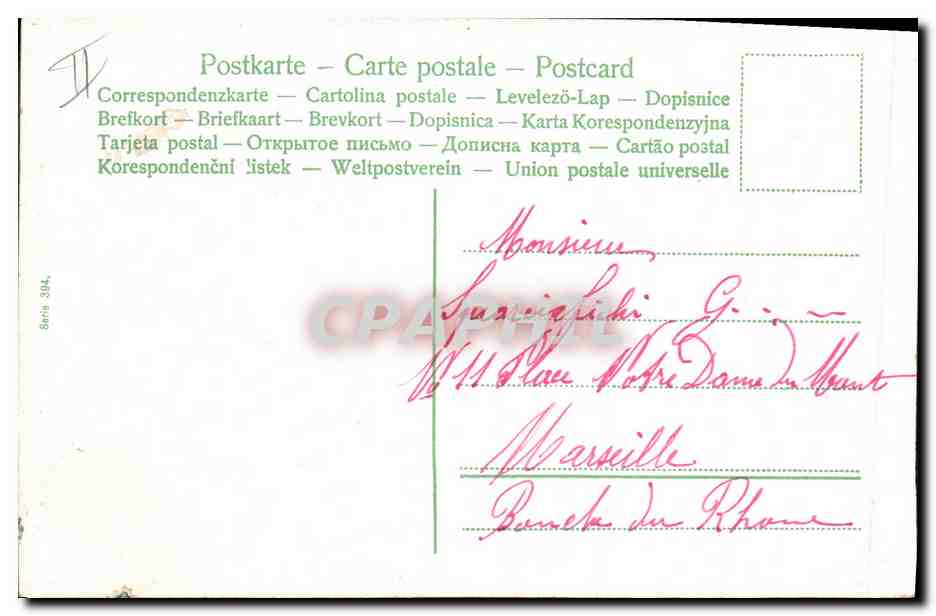 II
Postkarte – Carte postale – Postcard
Correspondenzkarte — Cartolina postale — Levelező-Lap — Dopisnice
Brefkort — Briefkaart — Brevkort — Dopisnica — Karta Korespondenzyjna
Tarjeta postal — Открытое письмо — Дописна карта — Cartão postal
Korespondenční listek — Weltpostverein — Union postale universelle
Serie 394.
Monsieur
G.
11 Place Notre Dame du Mont
Marseille
Bouche du Rhone
CPAPHIL